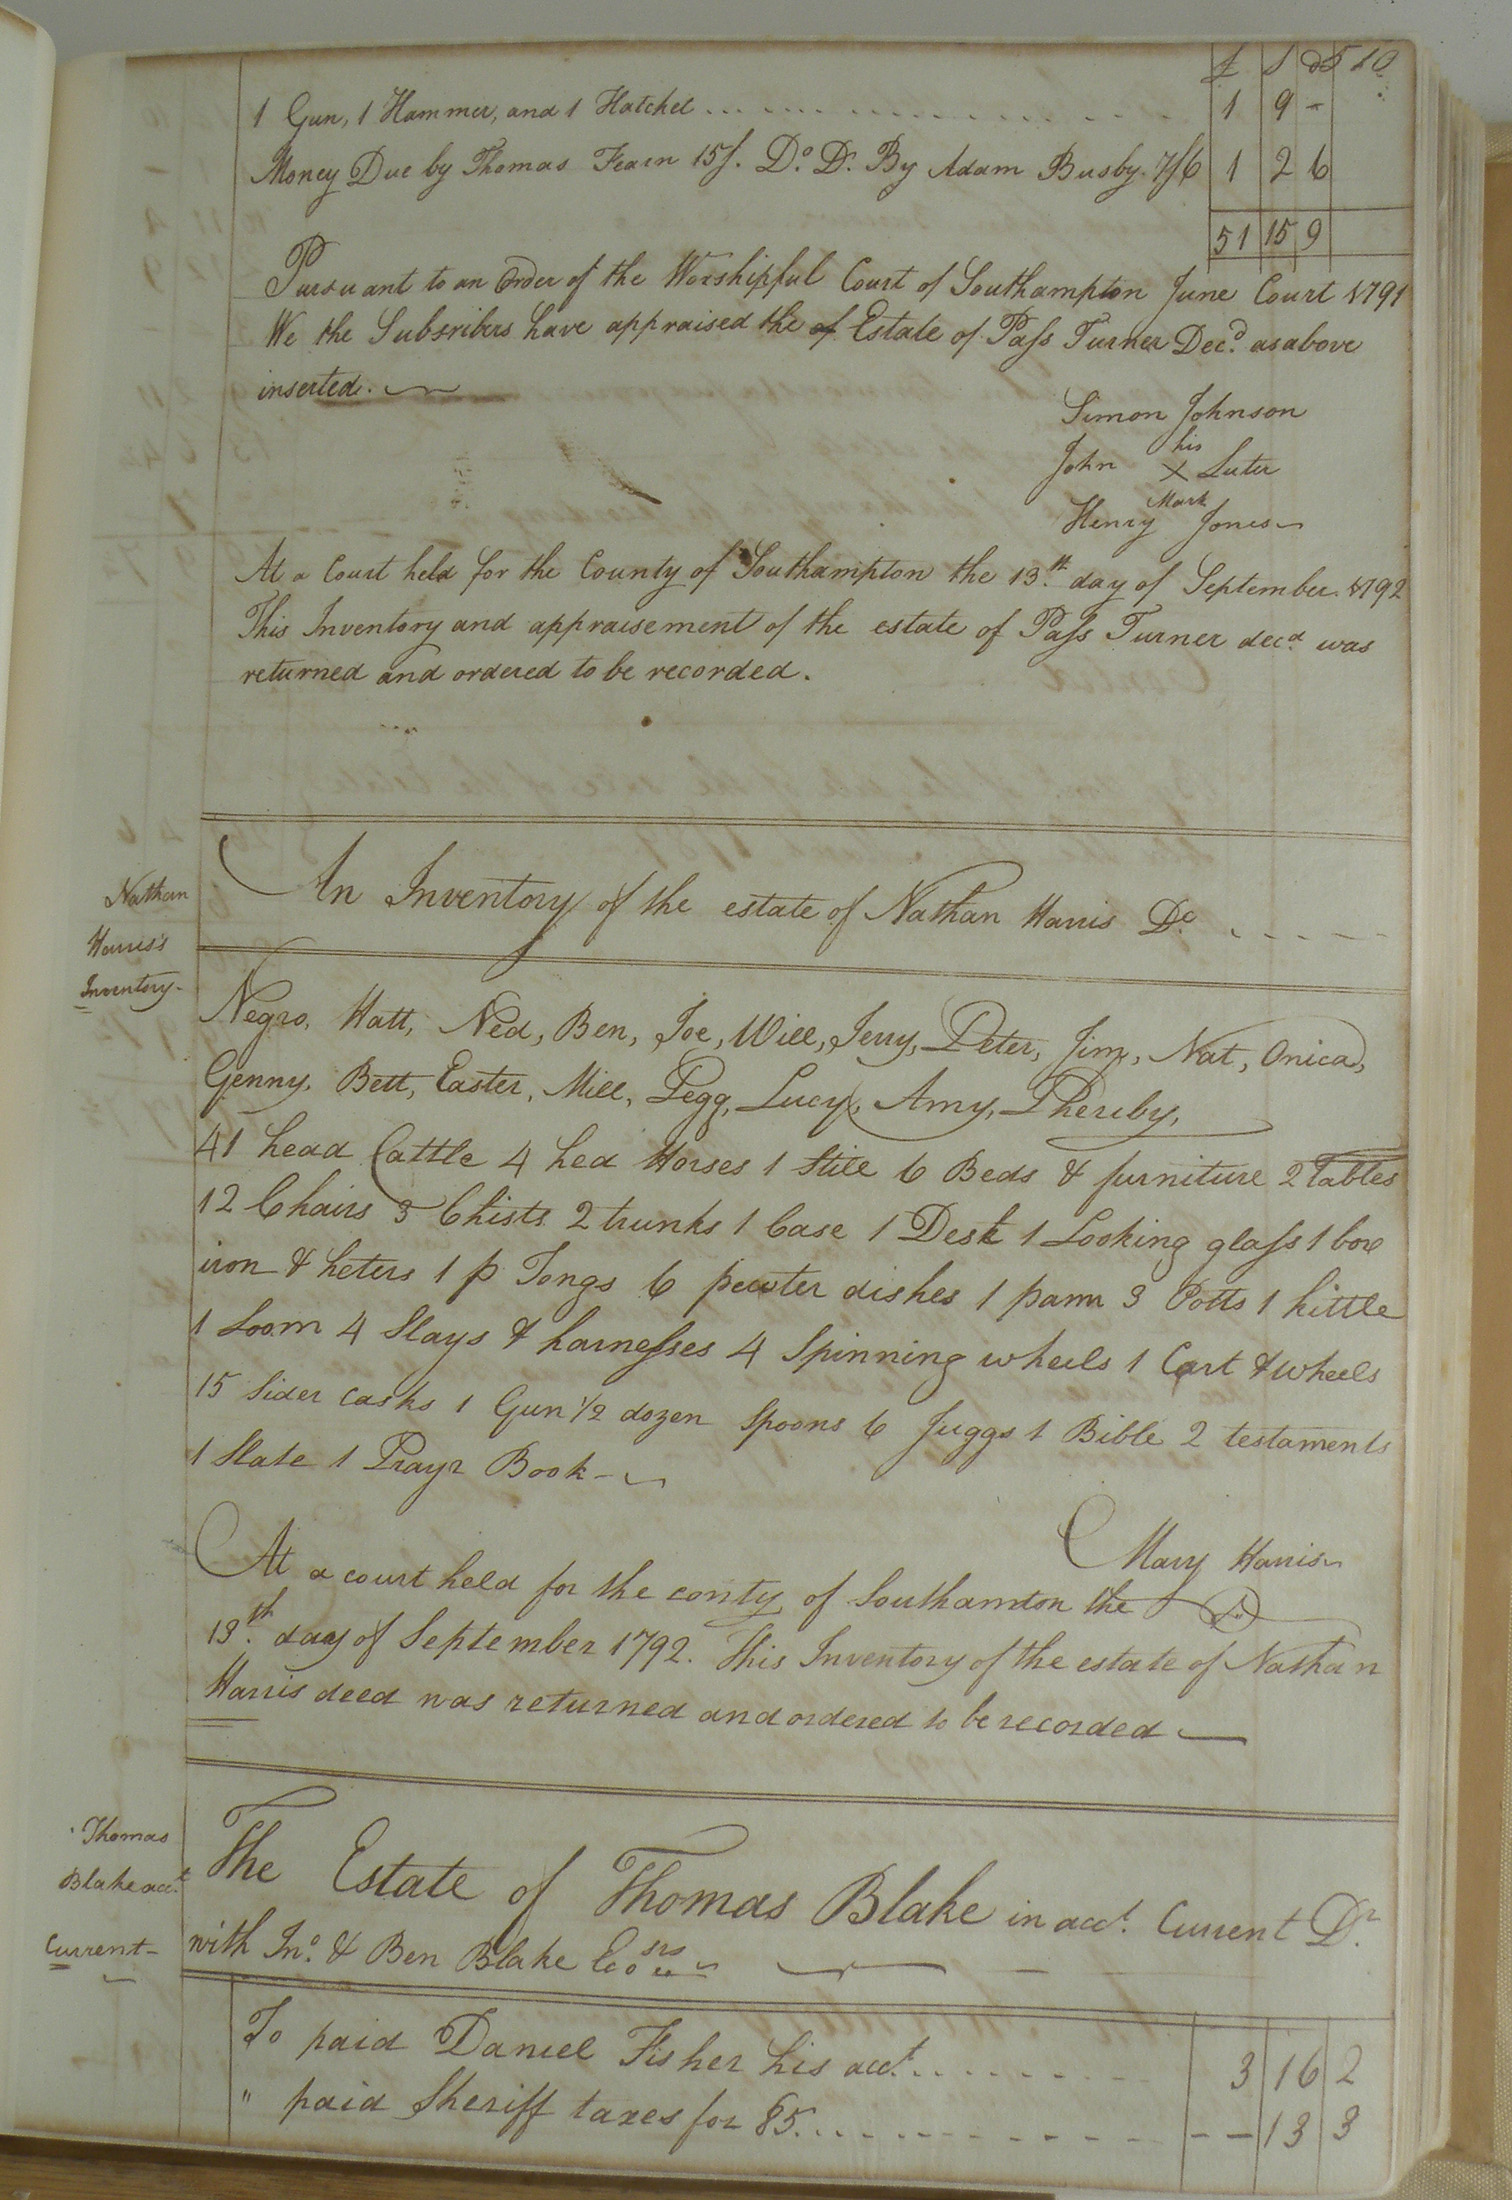 £ S d 510
1 Gun, 1 Hammer, and 1 Hatchel 1 9 -
Money Due by Thomas Fearn 15/. Do. D. By Adam Busby. 7/6 1 2 6
51 15 9
Pursuant to an Order of the Worshipful Court of Southampton June Court 1791
We the Subsribers have appraised the of Estate of Pass Turner Decd. as above
inserted.
Simon Johnson
his
John X Luter
Mark
Henry Jones
At a Court held for the County of Southampton the 13.th day of September. 1792
This Inventory and appraisement of the estate of Pass Turner decd was
returned and ordered to be recorded.
Nathan
Harris's
Inventory-
An Inventory of the estate of Nathan Harris Dc.
Negro, Hatt, Ned, Ben, Joe, Will, Jerry, Peter, Jim, Nat, Onica,
Genny, Bett, Easter, Mill, Pegg, Lucy, Amy, Phereby,
41 head Cattle 4 hed Horses 1 Still 6 Beds & furniture 2 Tables
12 Chairs 3 Chists 2 trunks 1 Case 1 Desk 1 Looking glass 1 box
iron & heters 1 p Tongs 6 pewter dishes 1 pann 3 Potts 1 kittle
1 Loom 4 Slays & harnesses 4 Spinning wheels 1 Cart & wheels
15 Sider casks 1 Gun 1/2 dozen Spoons 6 Juggs 1 Bible 2 testaments
1 Slate 1 Prayr Book-
Mary Harris
At a court held for the conty of Southamton the
13th. day of September 1792. This Inventory of the estate of Nathan
Harris deed was returned and ordered to be recorded
Thomas
Blake acct.
Current-
The Estate of Thomas Blake in acct. Current Dr.
with Jno. & Ben Blake
To paid Daniel Fisher his acct. 3 16 2
" paid Sheriff taxes for 85. - - 13 3